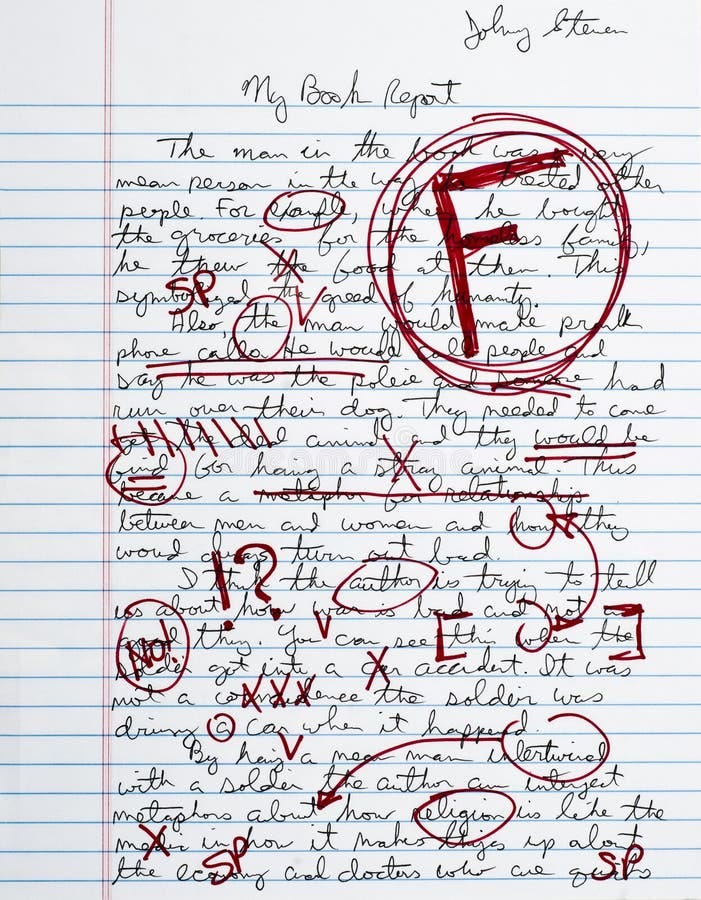 Johny Steven
My Book Report
The man in the book was a very
mean person in the way he treated other
people. For example, when he bought
the groceries for the homeless family,
he threw the food at them. This
SP
symbolized the greed of humanity.
Also, the man would make prank
phone calls. He would call people and
say he was the police and someone had
run over their dog. They needed to come
get the dead animal and they would be
find for having a stray animal. Thus
became a metaphor for relationships
between men and women and how they
would always turn out bad.
!?
I think the author is trying to tell
us about how war is bad and not
good thing. You can see this when the
NO!
solder got into a car accident. It was
not a the solder was
a car when it happened.
By having a mean man intertwined
with a solder the author can interject
metaphors about how religion is like the
in how it makes things up about
the economy and doctors who are
SP
SP
F